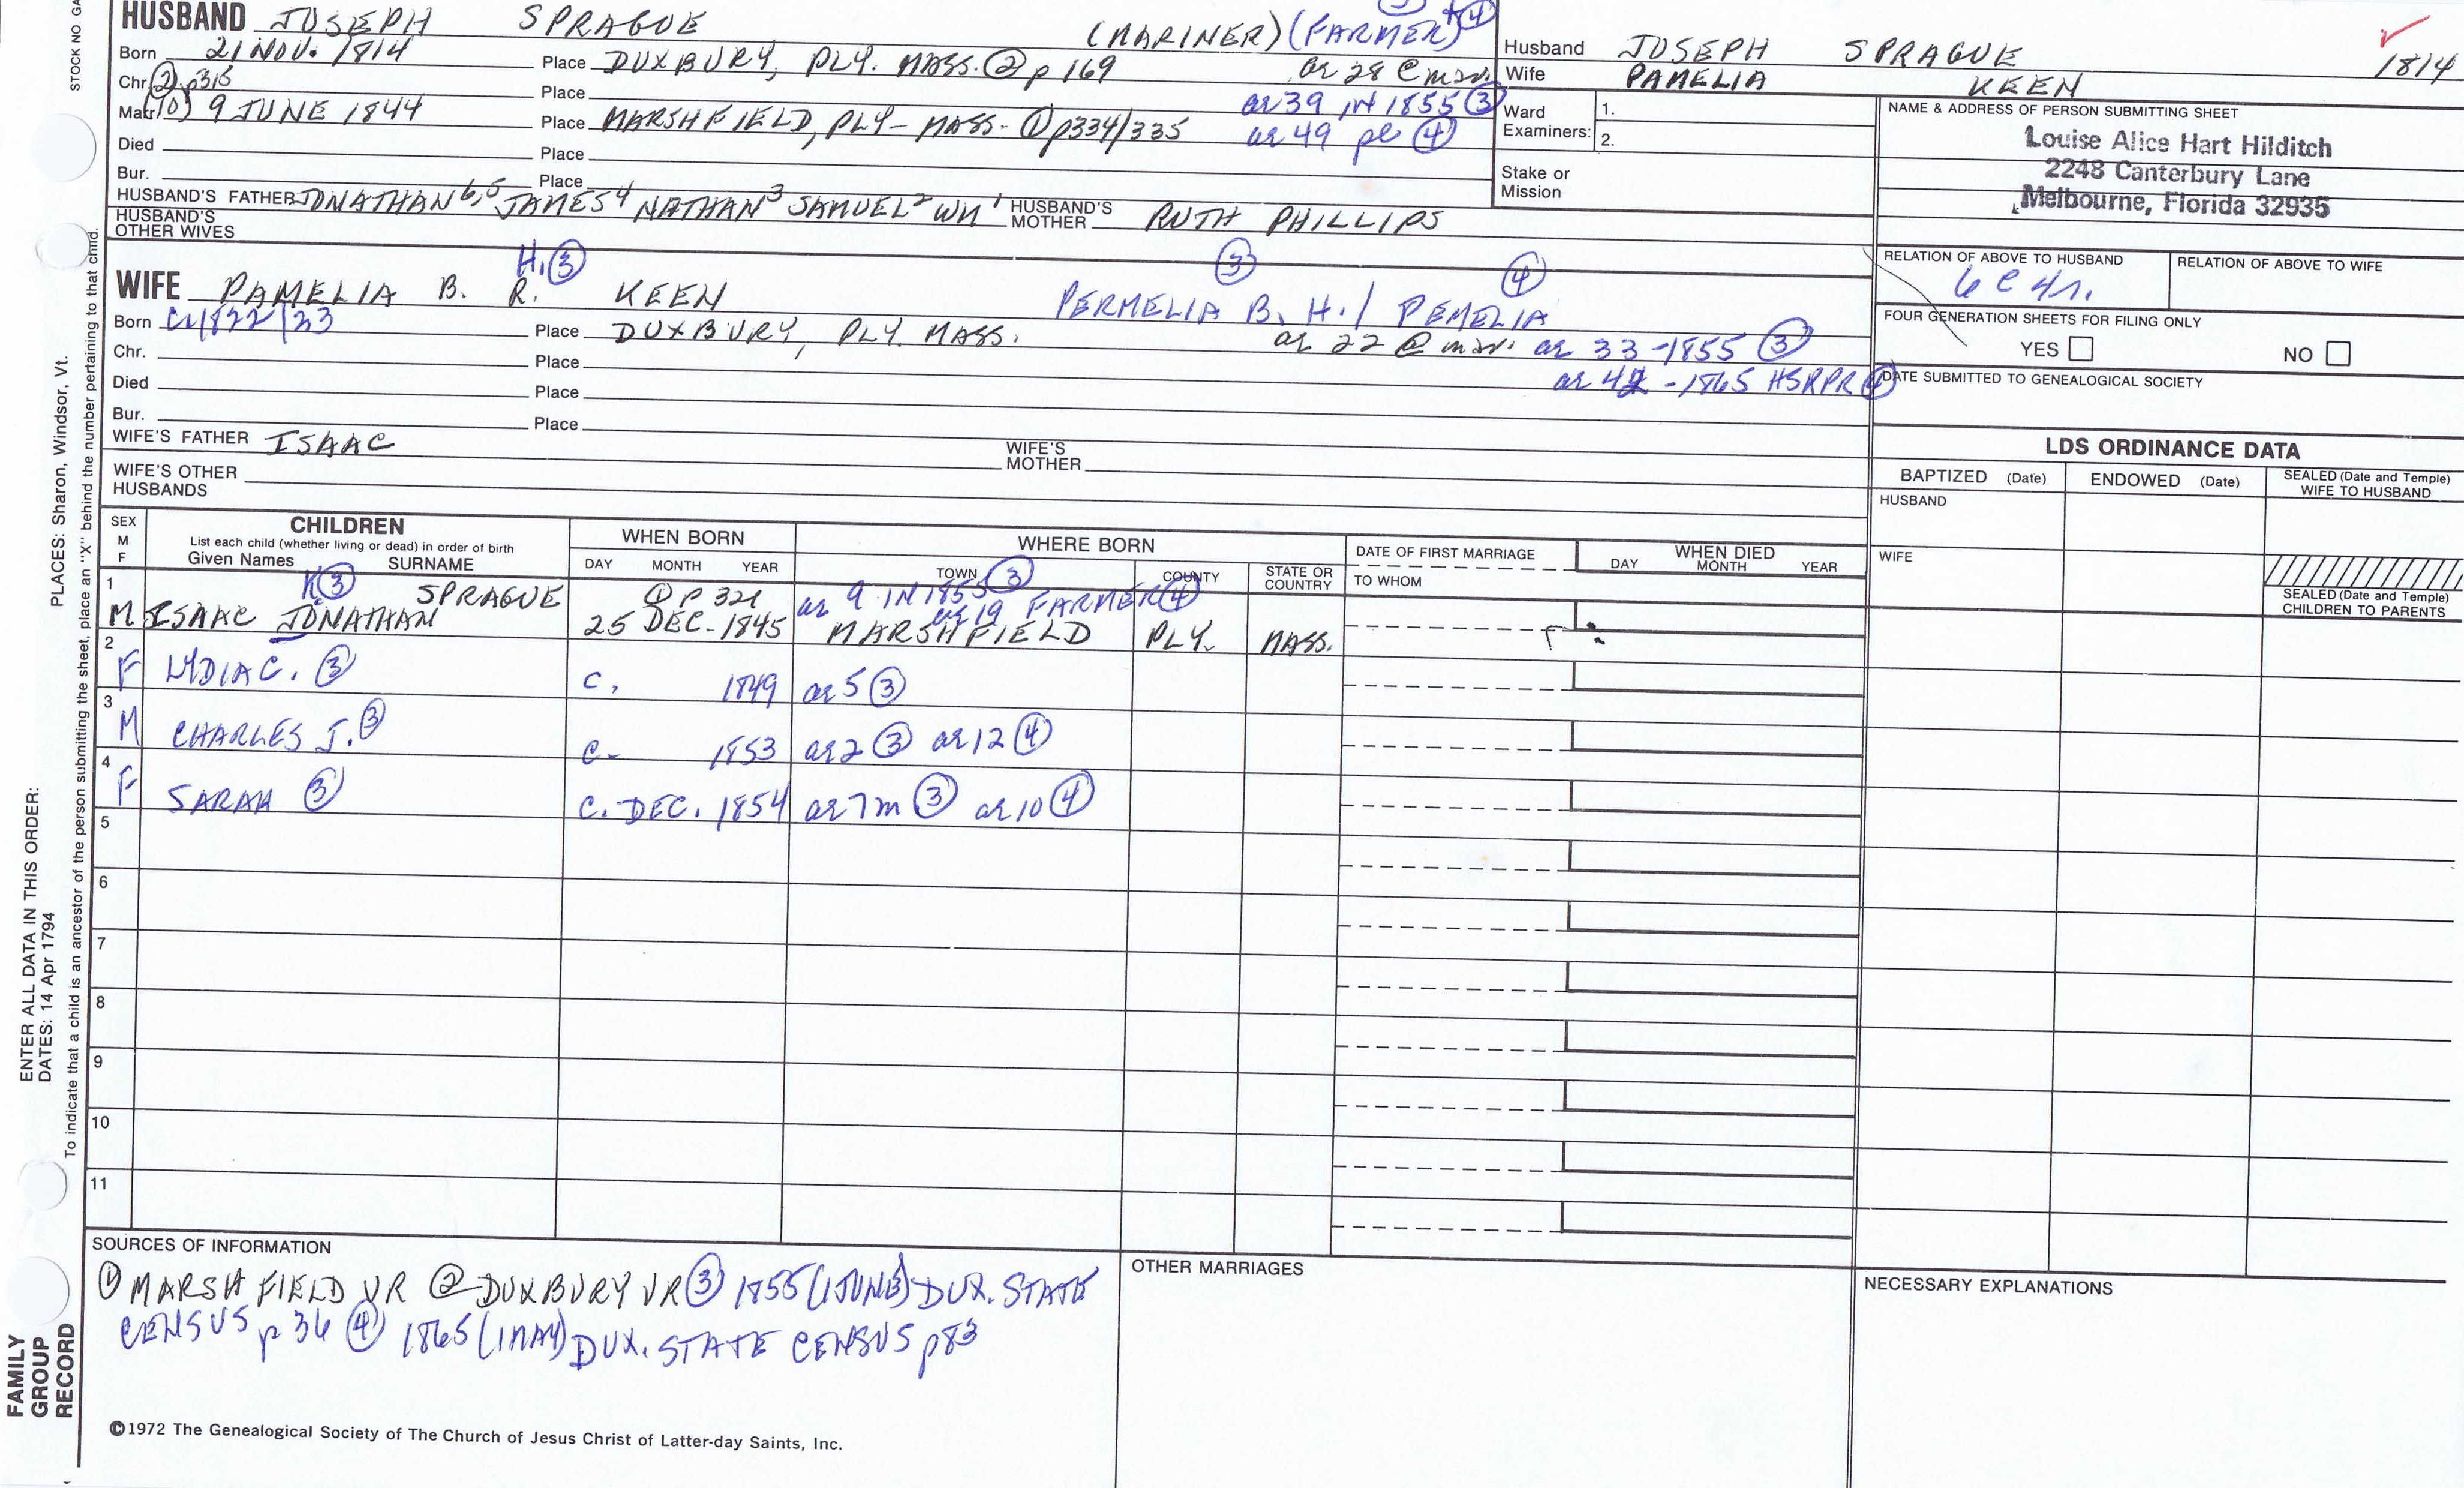 HUSBAND JOSEPH SPRAGUE (MARINER) (FARMER) + ④
Born 21 NOV. 1814 Place DUXBURY, PLY. MASS. ② p 169 ae 28 @ mar.
Chr. ② p315 Place ae 39 IN 1855 ③
Marr. (10) 9 JUNE 1844 Place MARSHFIELD, PLY- MASS- ① p334/335 ae 49 ④
Died Place
Bur. Place
HUSBAND'S FATHER JONATHAN 6,5 JAMES 4 NATHAN 3 SAMUEL 2 WM 1 HUSBAND'S MOTHER RUTH PHILLIPS
HUSBAND'S OTHER WIVES
Husband JOSEPH SPRAGUE 1814
Wife PAMELIA KEEN
Ward Examiners: 1.
2.
Stake or Mission
NAME & ADDRESS OF PERSON SUBMITTING SHEET
Louise Alice Hart Hilditch
2248 Canterbury Lane
Melbourne, Florida 32935
RELATION OF ABOVE TO HUSBAND RELATION OF ABOVE TO WIFE
6 C 4 r.
FOUR GENERATION SHEETS FOR FILING ONLY
YES NO
DATE SUBMITTED TO GENEALOGICAL SOCIETY
H. ③ ③ ④
WIFE PAMELIA B. R. KEEN PERMELIA B. H. / PEMELIA
Born C 1822/23 Place DUXBURY, PLY. MASS. ae 22 @ mar. ae 33 -1855 ③
Chr. Place ae 42 -1865 HSRPR ④
Died Place
Bur. Place
WIFE'S FATHER ISAAC WIFE'S MOTHER
WIFE'S OTHER HUSBANDS
LDS ORDINANCE DATA
BAPTIZED (Date) ENDOWED (Date) SEALED (Date and Temple) WIFE TO HUSBAND
HUSBAND
WIFE
SEALED (Date and Temple) CHILDREN TO PARENTS
SEX M F CHILDREN
List each child (whether living or dead) in order of birth
Given Names SURNAME
WHEN BORN
DAY MONTH YEAR
WHERE BORN
TOWN COUNTY STATE OR COUNTRY
DATE OF FIRST MARRIAGE
TO WHOM
WHEN DIED
DAY MONTH YEAR
1 K ③ SPRAGUE ① P 321 ae 9 IN 1855 ③ ae 19 FARMER ④
M ISAAC JONATHAN 25 DEC- 1845 MARSHFIELD PLY. MASS.
2 F LYDIA C. ③ C. 1849 ae 5 ③
3 M CHARLES J. ③ C- 1853 ae 2 ③ ae 12 ④
4 F SARAH ③ C. DEC. 1854 ae 7m ③ ae 10 ④
5
6
7
8
9
10
11
SOURCES OF INFORMATION
① MARSHFIELD VR ② DUXBURY VR ③ 1855 (1 JUNE) DUX. STATE
CENSUS p 36 ④ 1865 (1 MAY) DUX. STATE CENSUS p83
OTHER MARRIAGES
NECESSARY EXPLANATIONS
©1972 The Genealogical Society of The Church of Jesus Christ of Latter-day Saints, Inc.
STOCK NO GA
PLACES: Sharon, Windsor, Vt.
ENTER ALL DATA IN THIS ORDER:
DATES: 14 Apr 1794
To indicate that a child is an ancestor of the person submitting the sheet, place an "X" behind the number pertaining to that child.
FAMILY
GROUP
RECORD